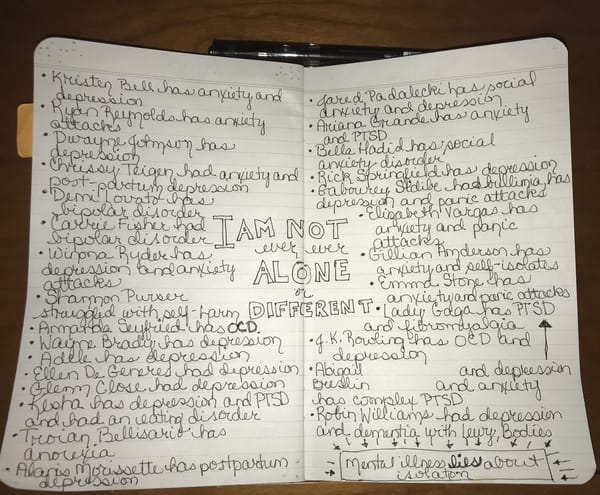 • Kristen Bell has anxiety and
depression
• Ryan Reynolds has anxiety
attacks
• Dwayne Johnson has
depression
• Chrissy Teigen had anxiety and
post-partum depression
• Demi Lovato has
bipolar disorder
• Carrie Fisher had
bipolar disorder
• Winona Ryder has
depression and anxiety
attacks
• Shannon Purser
struggled with self-harm
• Amanda Seyfried has OCD.
• Wayne Brady has depression
• Adele has depression
• Ellen De Generes had depression
• Glenn Close had depression
• Kesha has depression and PTSD
and had an eating disorder
• Troian Bellisario has
anorexia
• Alanis Morissette has postpartum
depression
I AM NOT
ever, ever
ALONE
or
DIFFERENT
• Jared Padalecki has social
anxiety and depression
• Ariana Grande has anxiety
and PTSD
• Bella Hadid has social
anxiety disorder
• Rick Springfield has depression
• Gabourey Sidibe had bullimia, has
depression and panic attacks
• Elizabeth Vargas has
anxiety and panic
attacks
• Gillian Anderson has
anxiety and self-isolates
• Emma Stone has
anxiety and panic attacks
• Lady Gaga has PTSD
and fibromyalgia
• J.K. Rowling has OCD and
depression
• Abigail and depression
Breslin and anxiety
has complex PTSD
• Robin Williams had depression
and dementia with Lewy Bodies
Mental illness lies about
isolation